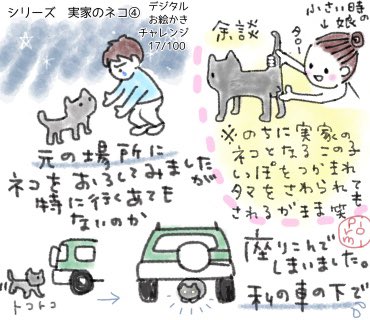 シリーズ 実家のネコ④
デジタル
お絵かき
チャレンジ
17/100
元の場所に
ネコをおろしてみましたが
特に行くあても
ないのか
余談
小さい時の
↓娘
タロー
※のちに実家の
ネコとなるこの子
しっぽをつかまれ
タマをさわられても
されるがまま笑
トコトコ
→
座りこんで
しまいました。
私の車の下で